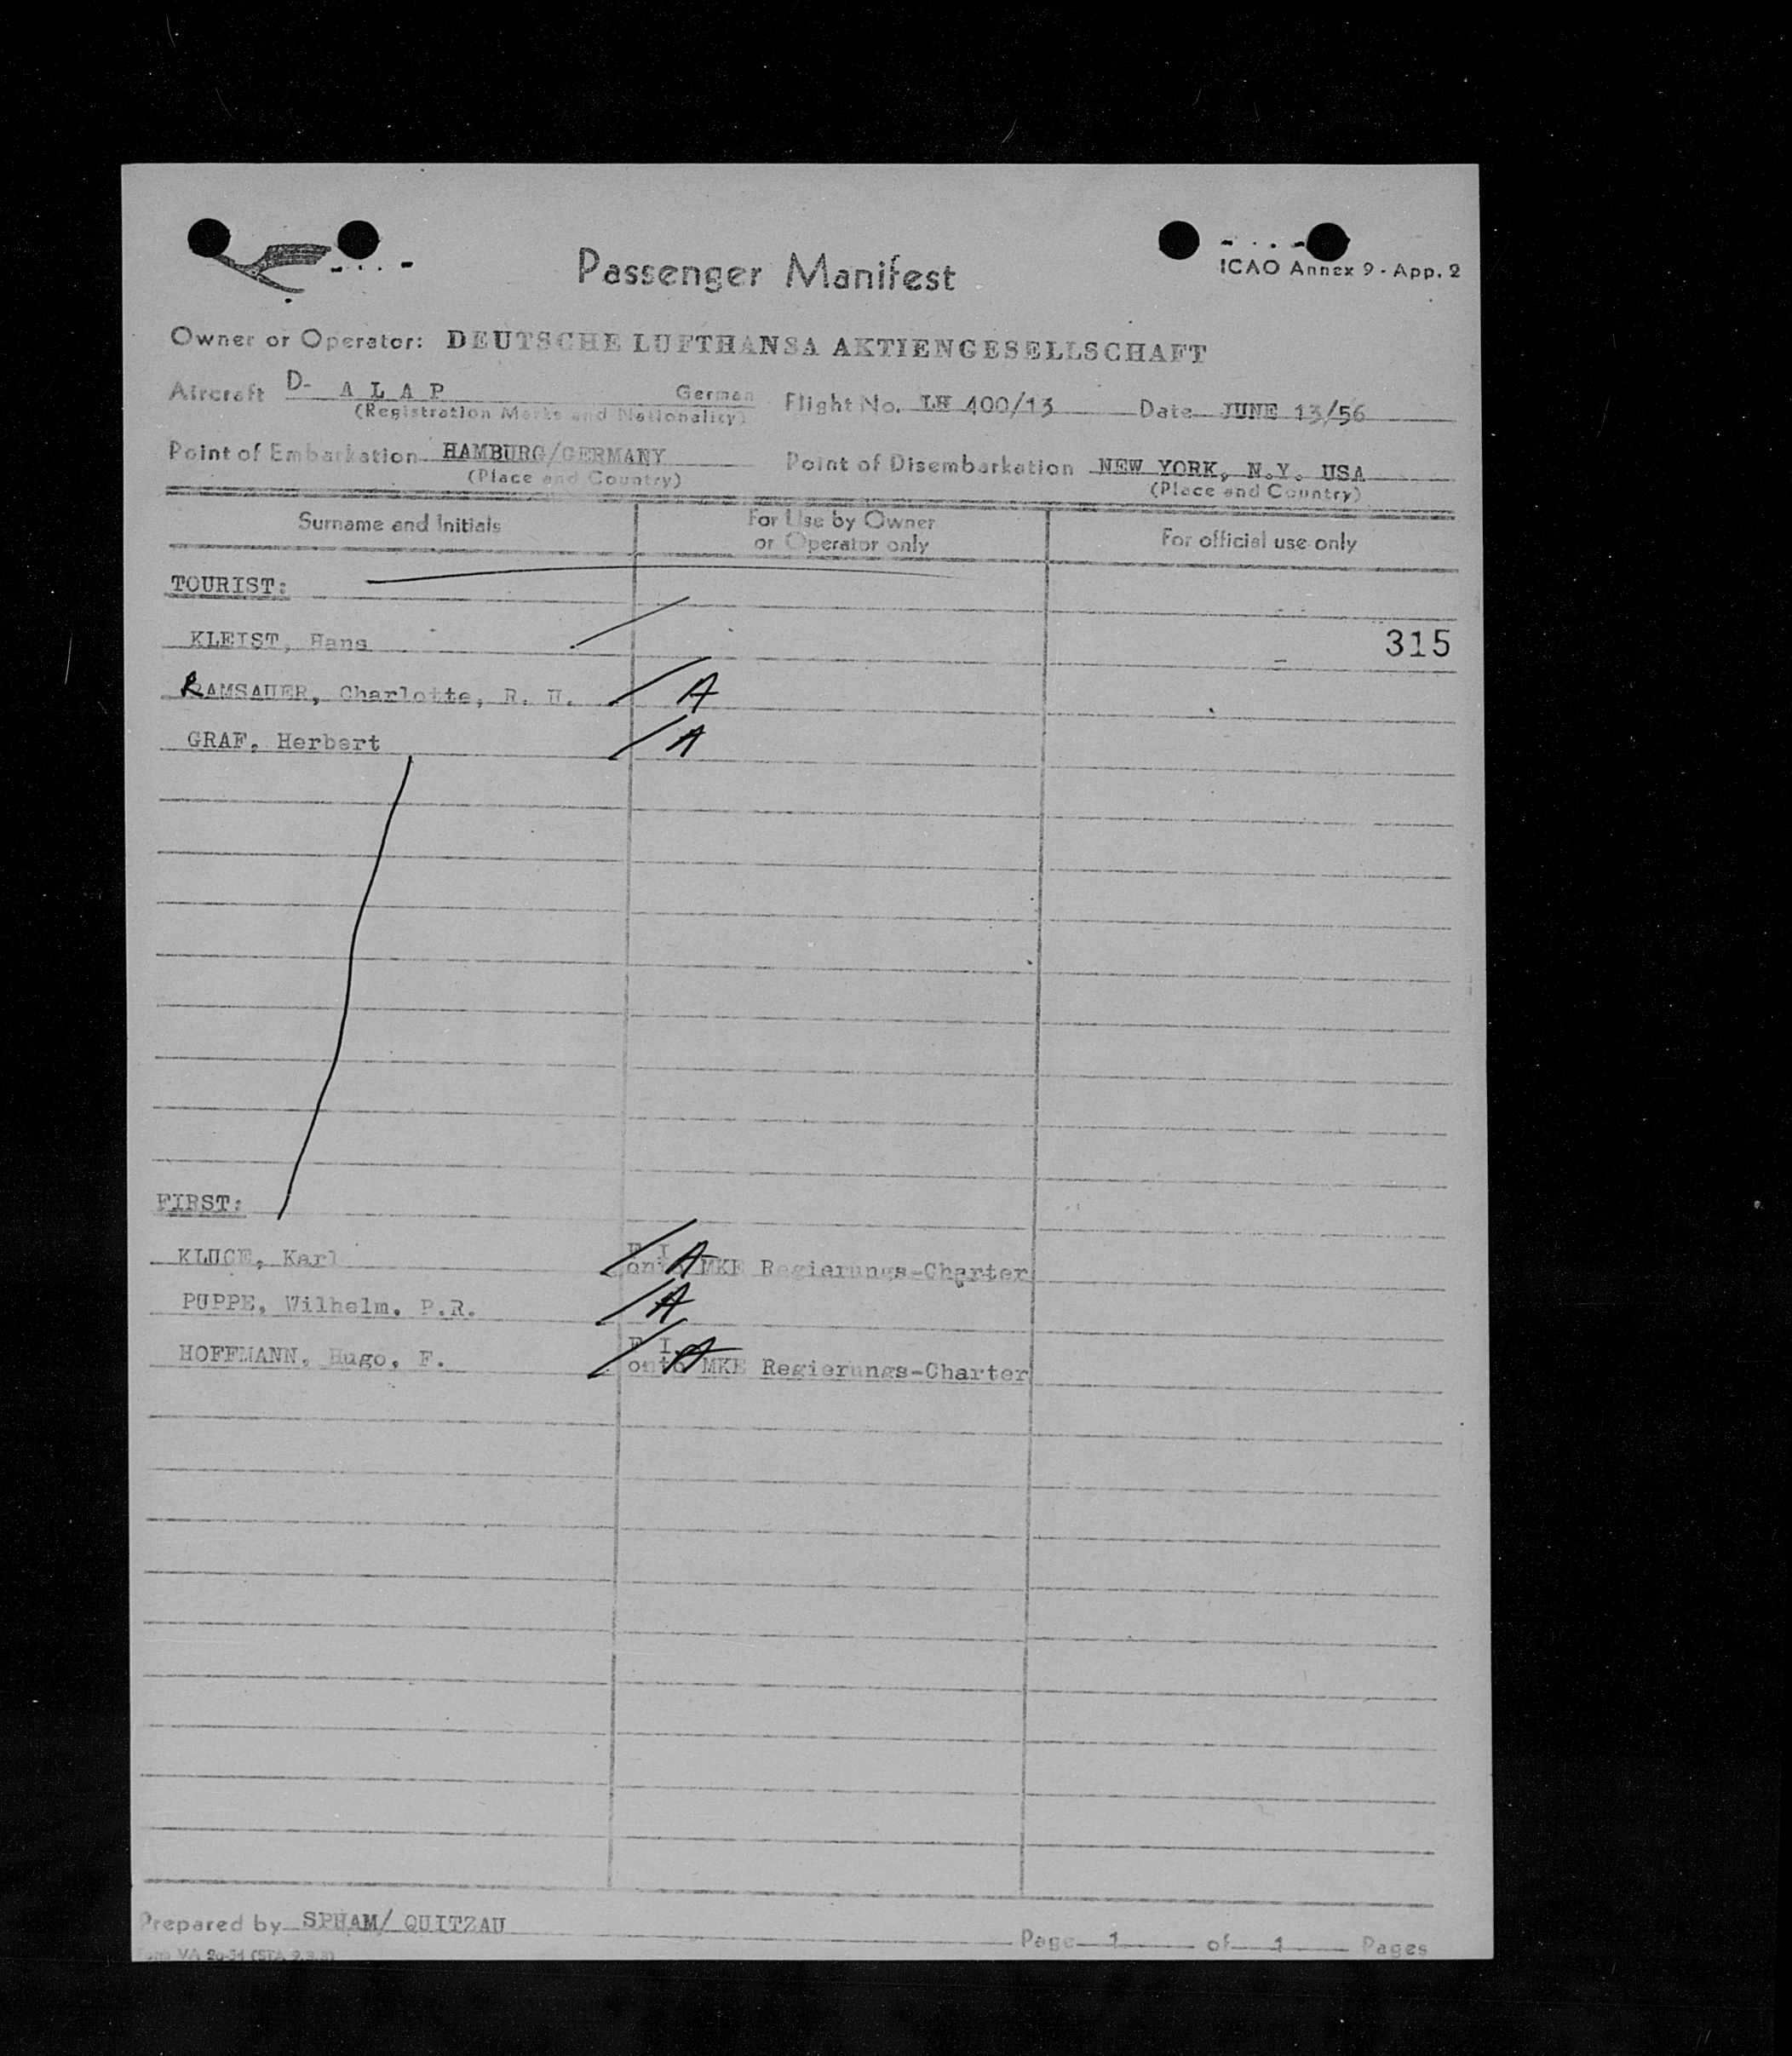 Passenger Manifest
ICAO Annex 9 - App. 2
Owner or Operator: DEUTSCHE LUFTHANSA AKTIENGESELLSCHAFT
Aircraft D- A L A P German Flight No. LH 400/13 Date JUNE 13/56
(Registration Marks and Nationality)
Point of Embarkation HAMBURG/GERMANY Point of Disembarkation NEW YORK, N.Y. USA
(Place and Country) (Place and Country)
Surname and Initials For Use by Owner or Operator only For official use only
TOURIST:
KLEIST, Hans 315
RAMSAUER, Charlotte, R. H. A
GRAF, Herbert A
FIRST:
KLUGE, Karl A onto MKE Regierungs-Charter
PUPPE, Wilhelm, P.R. A
HOFFMANN, Hugo, F. A onto MKE Regierungs-Charter
Prepared by SPHAM/ QUITZAU
Page 1 of 1 Pages